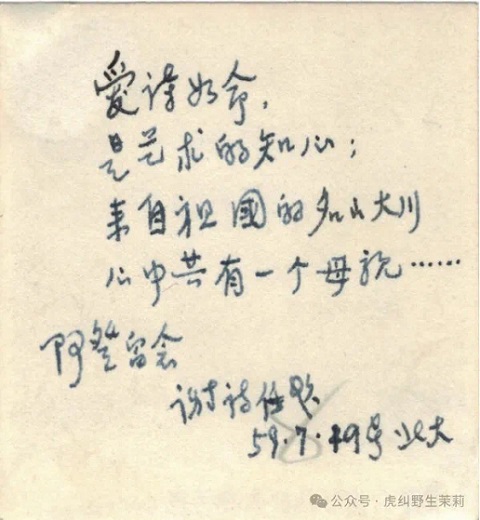 愛诗如命，
是艺术的知心；
来自祖國的名山大川
心中共有一个母親……
阿 留念
谢诗
59·7·19号 北大
公众号·虎纠野生茉莉